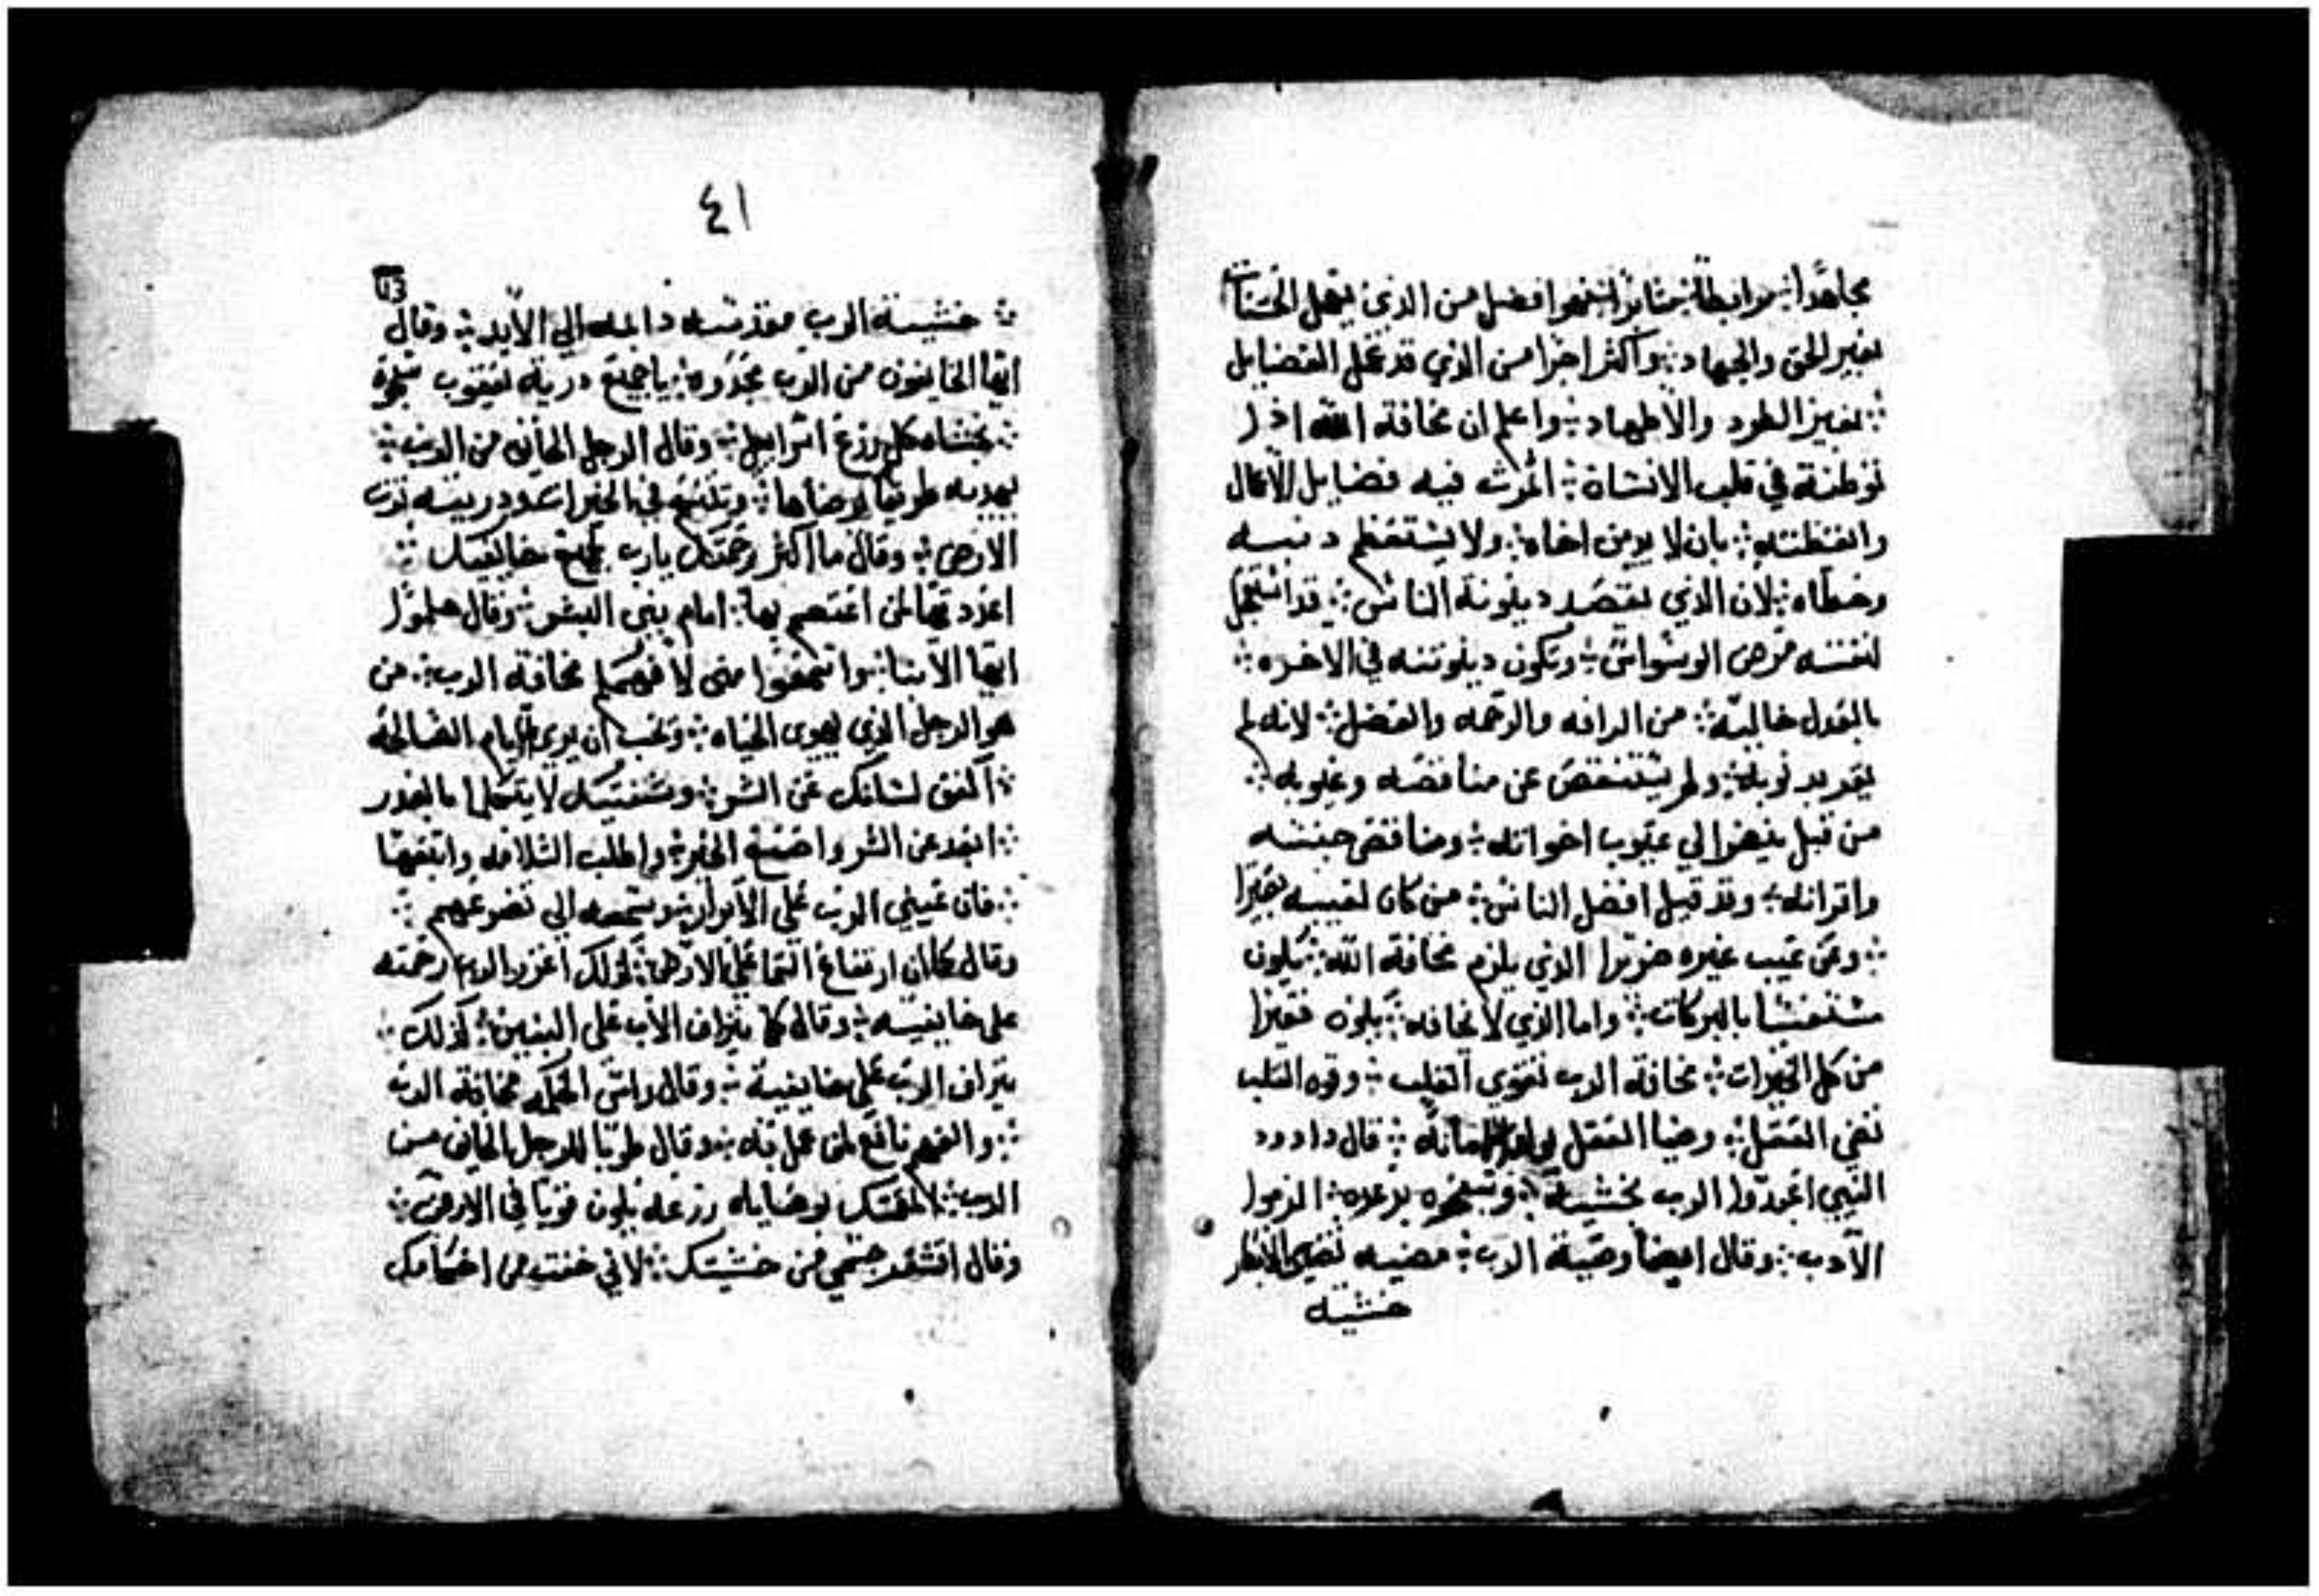 مجاهدًا مرابطًا مثابرًا فهو افضل من الذي يعمل الحسنات
بغير الحق والجهاد ⁘ واكثر اجرا من الذي قد عمل الفضايل
⁘ بغير الطرد والاطهاد ⁘ واعلم ان مخافة الله اذا
توطنة في قلب الانسان ⁘ اثمرت فيه فضايل الاعمال
والفطنه ⁘ بان لا يدين اخاه ⁘ ولا يستعظم دنبه
وخطاه ⁘ لان الذي يقصد دينونة الناس ⁘ قد استعمل
لنفسه مرض الوسواس ⁘ وتكون دينونته في الاخره ⁘
بالعدل خاليه ⁘ من الرافه والرحمه والفضل ⁘ لانه لم
يقر بدنوبه ⁘ ولم يستنقص عن مناقصه وعيوبه ⁘
من قبل ينضر الي عيوب اخوانه ⁘ ومناقص جنسه
واقرانه ⁘ وقد قيل افضل الناس ⁘ من كان لعيبه بصيرا
⁘ وعن عيب غيره ضريرا الذي يلزم مخافة الله ⁘ يكون
مستغنيا بالبركات ⁘ واما الذي لا يخافه ⁘ يكون فقيرا
من كل الخيرات ⁘ مخافة الرب تقوي القلب ⁘ وقوه القلب
تضي العقل ⁘ وضيا العقل ⁘ قال داوود
النبي اعبدوا الرب بخشية ⁘ برعده ⁘ المزمور
الآدب ⁘ وقال ايضا وصية الرب ⁘ مضيه تضي الابصار
خشية
٤١
13
⁘ خشية الرب مقدسه دايمه الي الآبد ⁘ وقال
ايها الخايفون من الرب مجدوه ⁘ يا جميع درية يعقوب
⁘ يخشاه كل زرع اسراييل ⁘ وقال الرجل الخايف من الرب ⁘
يهديه طريقا يرضاها ⁘ في الخيرات ودريته ترت
الارض ⁘ وقال ما اكثر رحمتك يارب لجميع خايفيك ⁘
اعددتها لمن اعتصم بها ⁘ امام بني البشر ⁘ وقال هلموا
ايها الآبنا ⁘ واسمعوا مني لا فهمكم مخافة الرب ⁘ من
هو الرجل الذي يهوى الحياه ⁘ ويحب ان يرى الايام الصالحة
⁘ اكفف لسانك عن الشر ⁘ وشفتيك لا يتكلما بالغدر
⁘ ابعد عن الشر واصنع الخير ⁘ واطلب السلامه واتبعها
⁘ فان عيني الرب على الآبرار ⁘ وسمعه الي تضرعهم ⁘
وقال كما ان ارتفاع السما على الارض ⁘ كذلك اعزز الرب رحمته
على خايفيه ⁘ وقال كما يتراف الآب على البنين ⁘ كذلك ⁘
يتراف الرب على خايفية ⁘ وقال راس الحكمه مخافة الرب
⁘ والفهم نافع لمن عمل به ⁘ وقال طوبا للرجل الخايف من
الرب ⁘ بوصاياه زرعه يكون قويا في الارض ⁘
وقال اقشعر جسمي من خشيتك ⁘ لاني خفت من احكامك